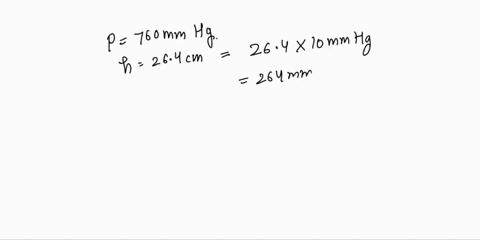 P = 760 mm Hg.
h = 26.4 cm = 26.4 × 10 mm Hg
= 264 mm